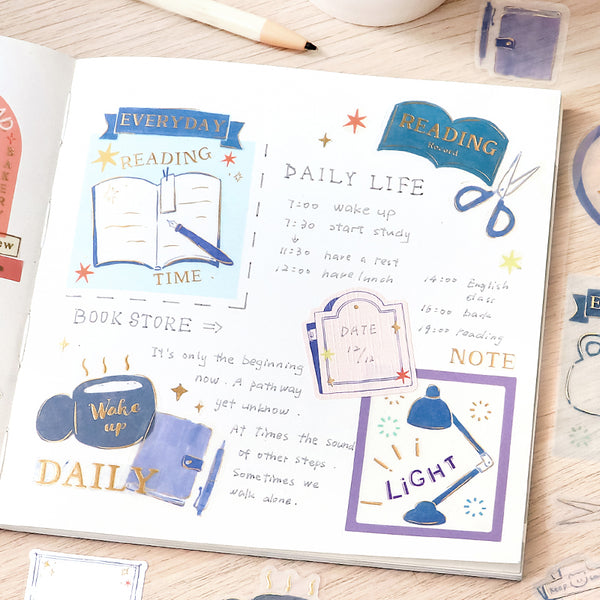 EVERYDAY
READING
TIME
READING
Record
DAILY LIFE
7:00 wake up
7:30 start study
11:30 have a rest
12:00 have lunch
14:00 English
class
19:00 reading
BOOK STORE ⇒
DATE
12/12
NOTE
It's only the beginning
now. A pathway
yet unknow.
At times the sound
of other steps.
Sometimes we
walk alone.
Wake
up
DAILY
LIGHT
BAKERY